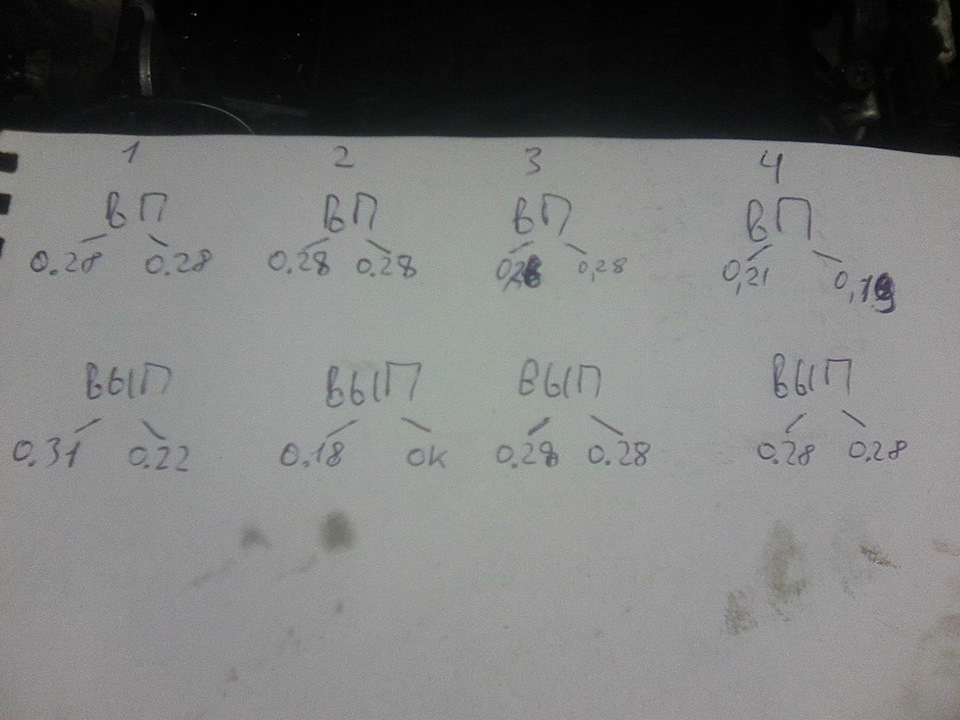 1 2 3 4
ВП ВП ВП ВП
0.28 0.28 0.28 0.28 0,28 0,21 0,19
ВЫП ВЫП ВЫП ВЫП
0.31 0.22 0.18 ОК 0.28 0.28 0.28 0.28